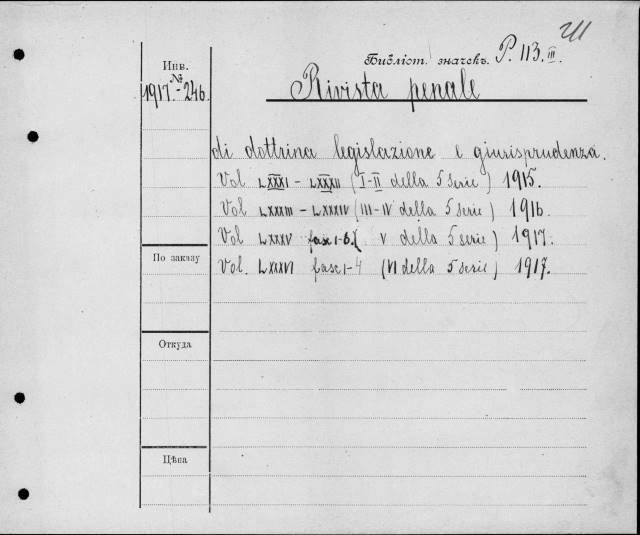 Библіот. значекъ. P. 113. III.
Инв.
№
1917.-246.
Rivista penale
di dottrina legislazione e giurisprudenza.
Vol LXXXI - LXXXII (I-II della 5 serie) 1915.
Vol LXXXIII - LXXXIV (III-IV della 5 serie) 1916.
Vol LXXXV fasc 1-6. (V della 5 serie) 1917.
Vol. LXXXVI fasc 1-4 (VI della 5 serie) 1917.
По заказу
Откуда
Цѣна